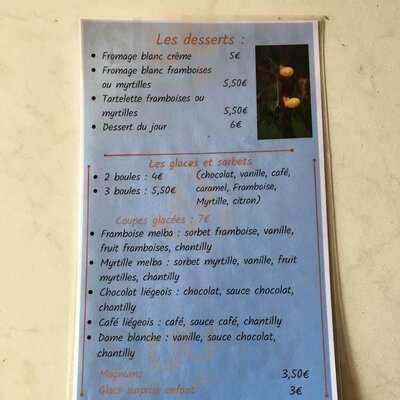 Les desserts :
• Fromage blanc crème 5€
• Fromage blanc framboises
ou myrtilles 5,50€
• Tartelette framboises ou
myrtilles 5,50€
• Dessert du jour 6€
Les glaces et sorbets
• 2 boules : 4€ (chocolat, vanille, café,
• 3 boules : 5,50€ caramel, Framboise,
Myrtille, citron)
Coupes glacées : 7€
• Framboise melba : sorbet framboise, vanille,
fruit framboises, chantilly
• Myrtille melba : sorbet myrtille, vanille, fruit
myrtilles, chantilly
• Chocolat liégeois : chocolat, sauce chocolat,
chantilly
• Café liégeois : café, sauce café, chantilly
• Dame blanche : vanille, sauce chocolat,
chantilly
Magnums 3,50€
Glace surprise enfant 3€